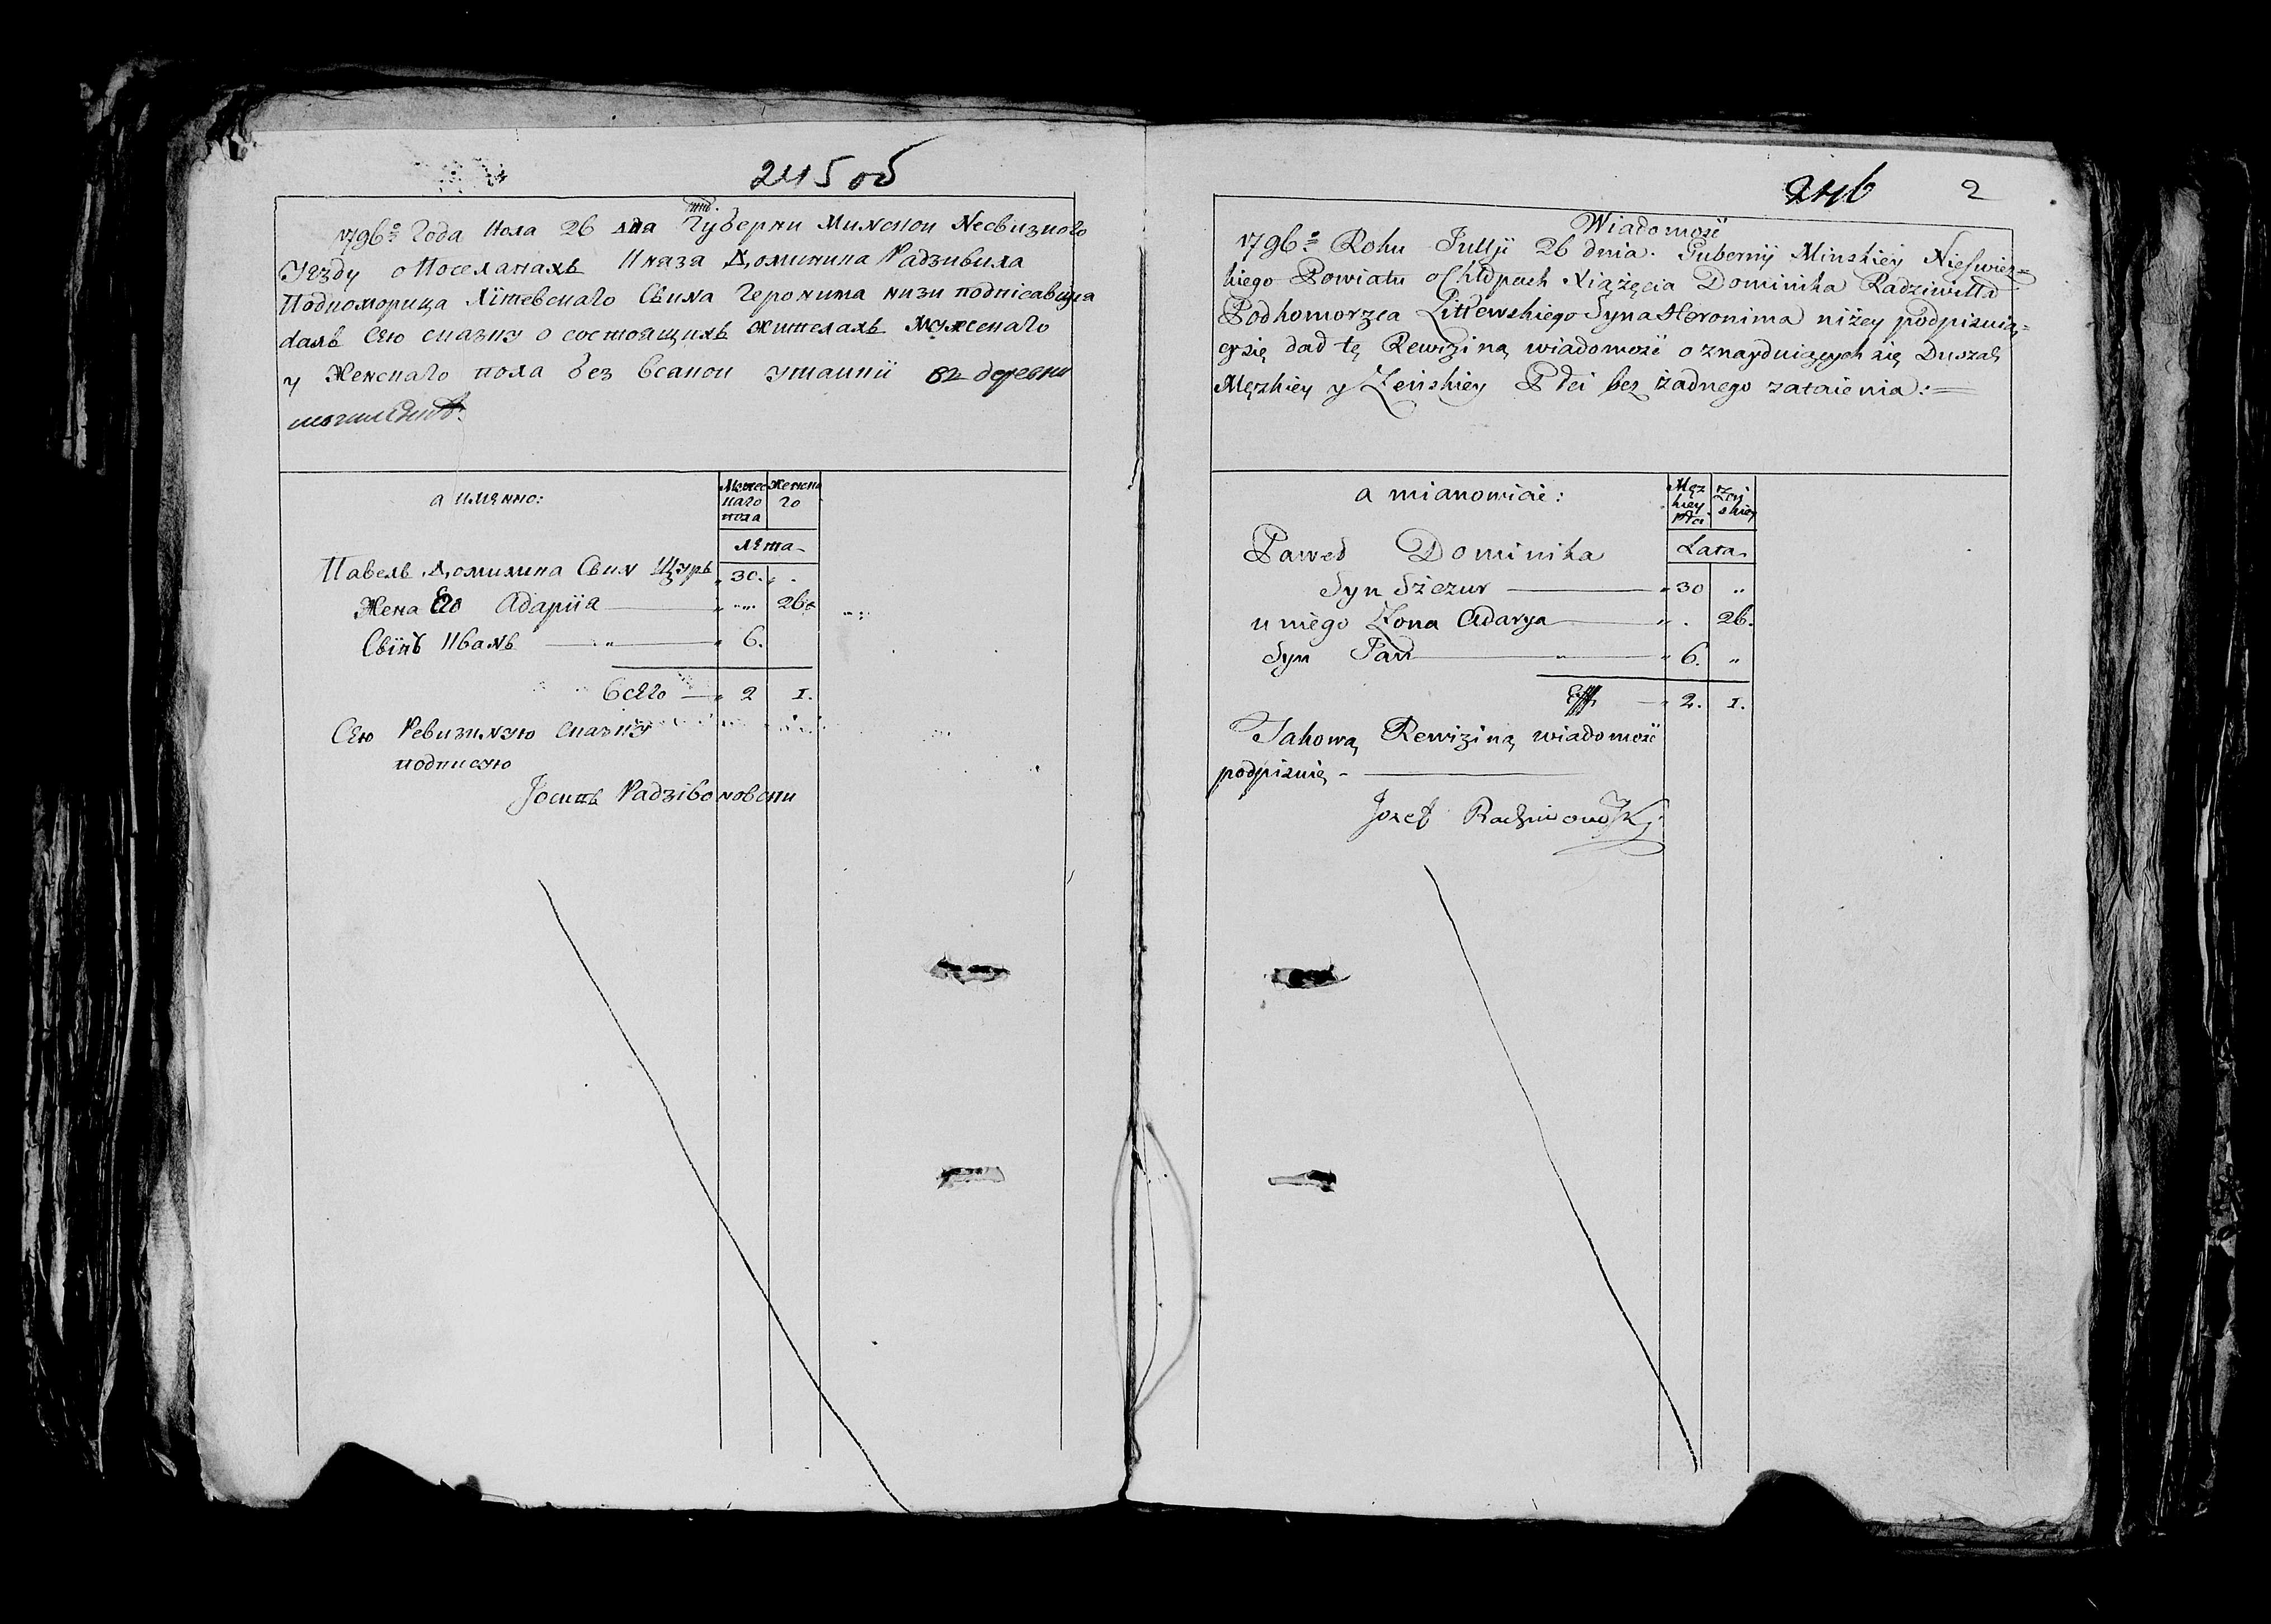 245 об
1796го Года Июля 26 дня Губерни Минской Несвизкого
Уезду о Поселанахъ Кназа Доминика Радзивила
Подкоморица Літевскаго Сына Геронима низи подпісавшіся
далъ Сію сказку о состоящихъ жителахъ мужескаго
у Женскаго пола без всакои утаикіи въ деревни
а имянно:
Мужес
каго
пола
Женска
го
Лѣта
Павелъ Доминика Сынъ Щуръ 30.
Жена Его Адаріа 26
Сынъ Иванъ 6.
Всего 2 1.
Сею Ревизкую Сказку
подписую
Іосипъ Радзівоновски
246 2
Wiadomość
1796o Roku Julÿ 26 dnia. Gubernÿ Minskiey Nieswiez=
kiego Powiatu o Chłopach Xiążęcia Dominika Radziwiłła
Podkomorzca Littewskiego Syna Heronima niżey podpisuią=
cy się dał tę Rewizіną wiadomość o znayduiących się Duszach
Męzkiey y Zeńskiey Płci bez żadnego zataienia:=
a mianowicie:
Męz
kiey
płci
Zeń
skiey
Lata.
Paweł Dominika
Syn Szczur 30 "
u niego Zona Adarya " . 26.
Syn Jan " 6. "
2. 1.
Takową Rewizіną wiadomość
podpisuię -
Jozef Radziwonowski